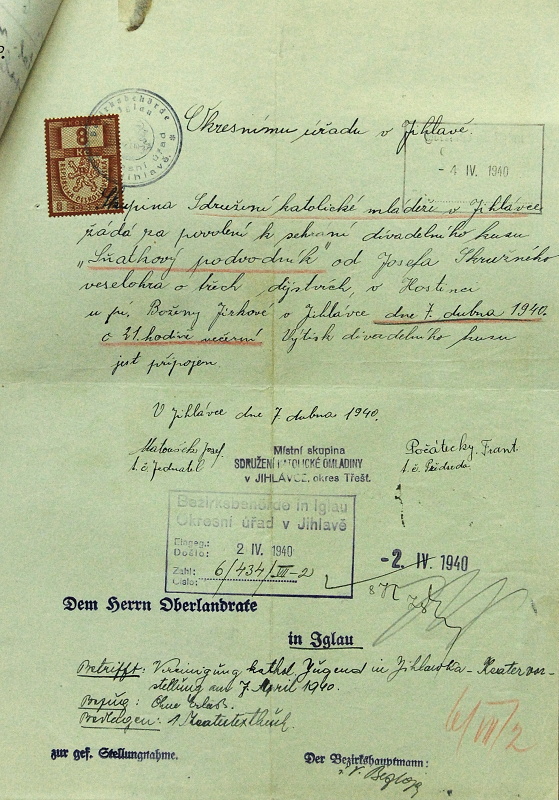 8
Kč
Bezirksbehörde
Iglau
Okresnímu úřadu v Jihlavě.
-4 IV. 1940
Skupina Sdružení katolické mládeže v Jihlávce
žádá za povolení k sehrání divadelního kusu
„Sňatkový podvodník" od Josefa Skružného
veselohra o třech dějstvích, v Hostinci
u pí. Boženy Jirkové v Jihlávce dne 7. dubna 1940.
o 21. hodině večerní Výtisk divadelního kusu
jest připojen.
V Jihlávce dne 7. dubna 1940.
Josef
t. č. Jednatel
Místní skupina
SDRUŽENÍ KATOLICKÉ OMLADINY
v JIHLÁVCE, okres Třešť.
Počátecký Frant.
t. č. Předseda
Bezirksbehörde in Iglau
Okresní úřad v Jihlavě
Eingeg.:
Došlo: 2 IV. 1940
Zahl:
Číslo: 6/434/VII-2
-2. IV. 1940
Dem Herrn Oberlandrate
in Iglau
Betrifft: Vereinigung kathol. Jugend in Jihlawka - Theatervor-
stellung am 7. April 1940.
Bezug: Ohne Erlaß.
Beilagen: 1 Theatertextbuch.
6/VII/2
zur gef. Stellungnahme.
Der Bezirkshauptmann: